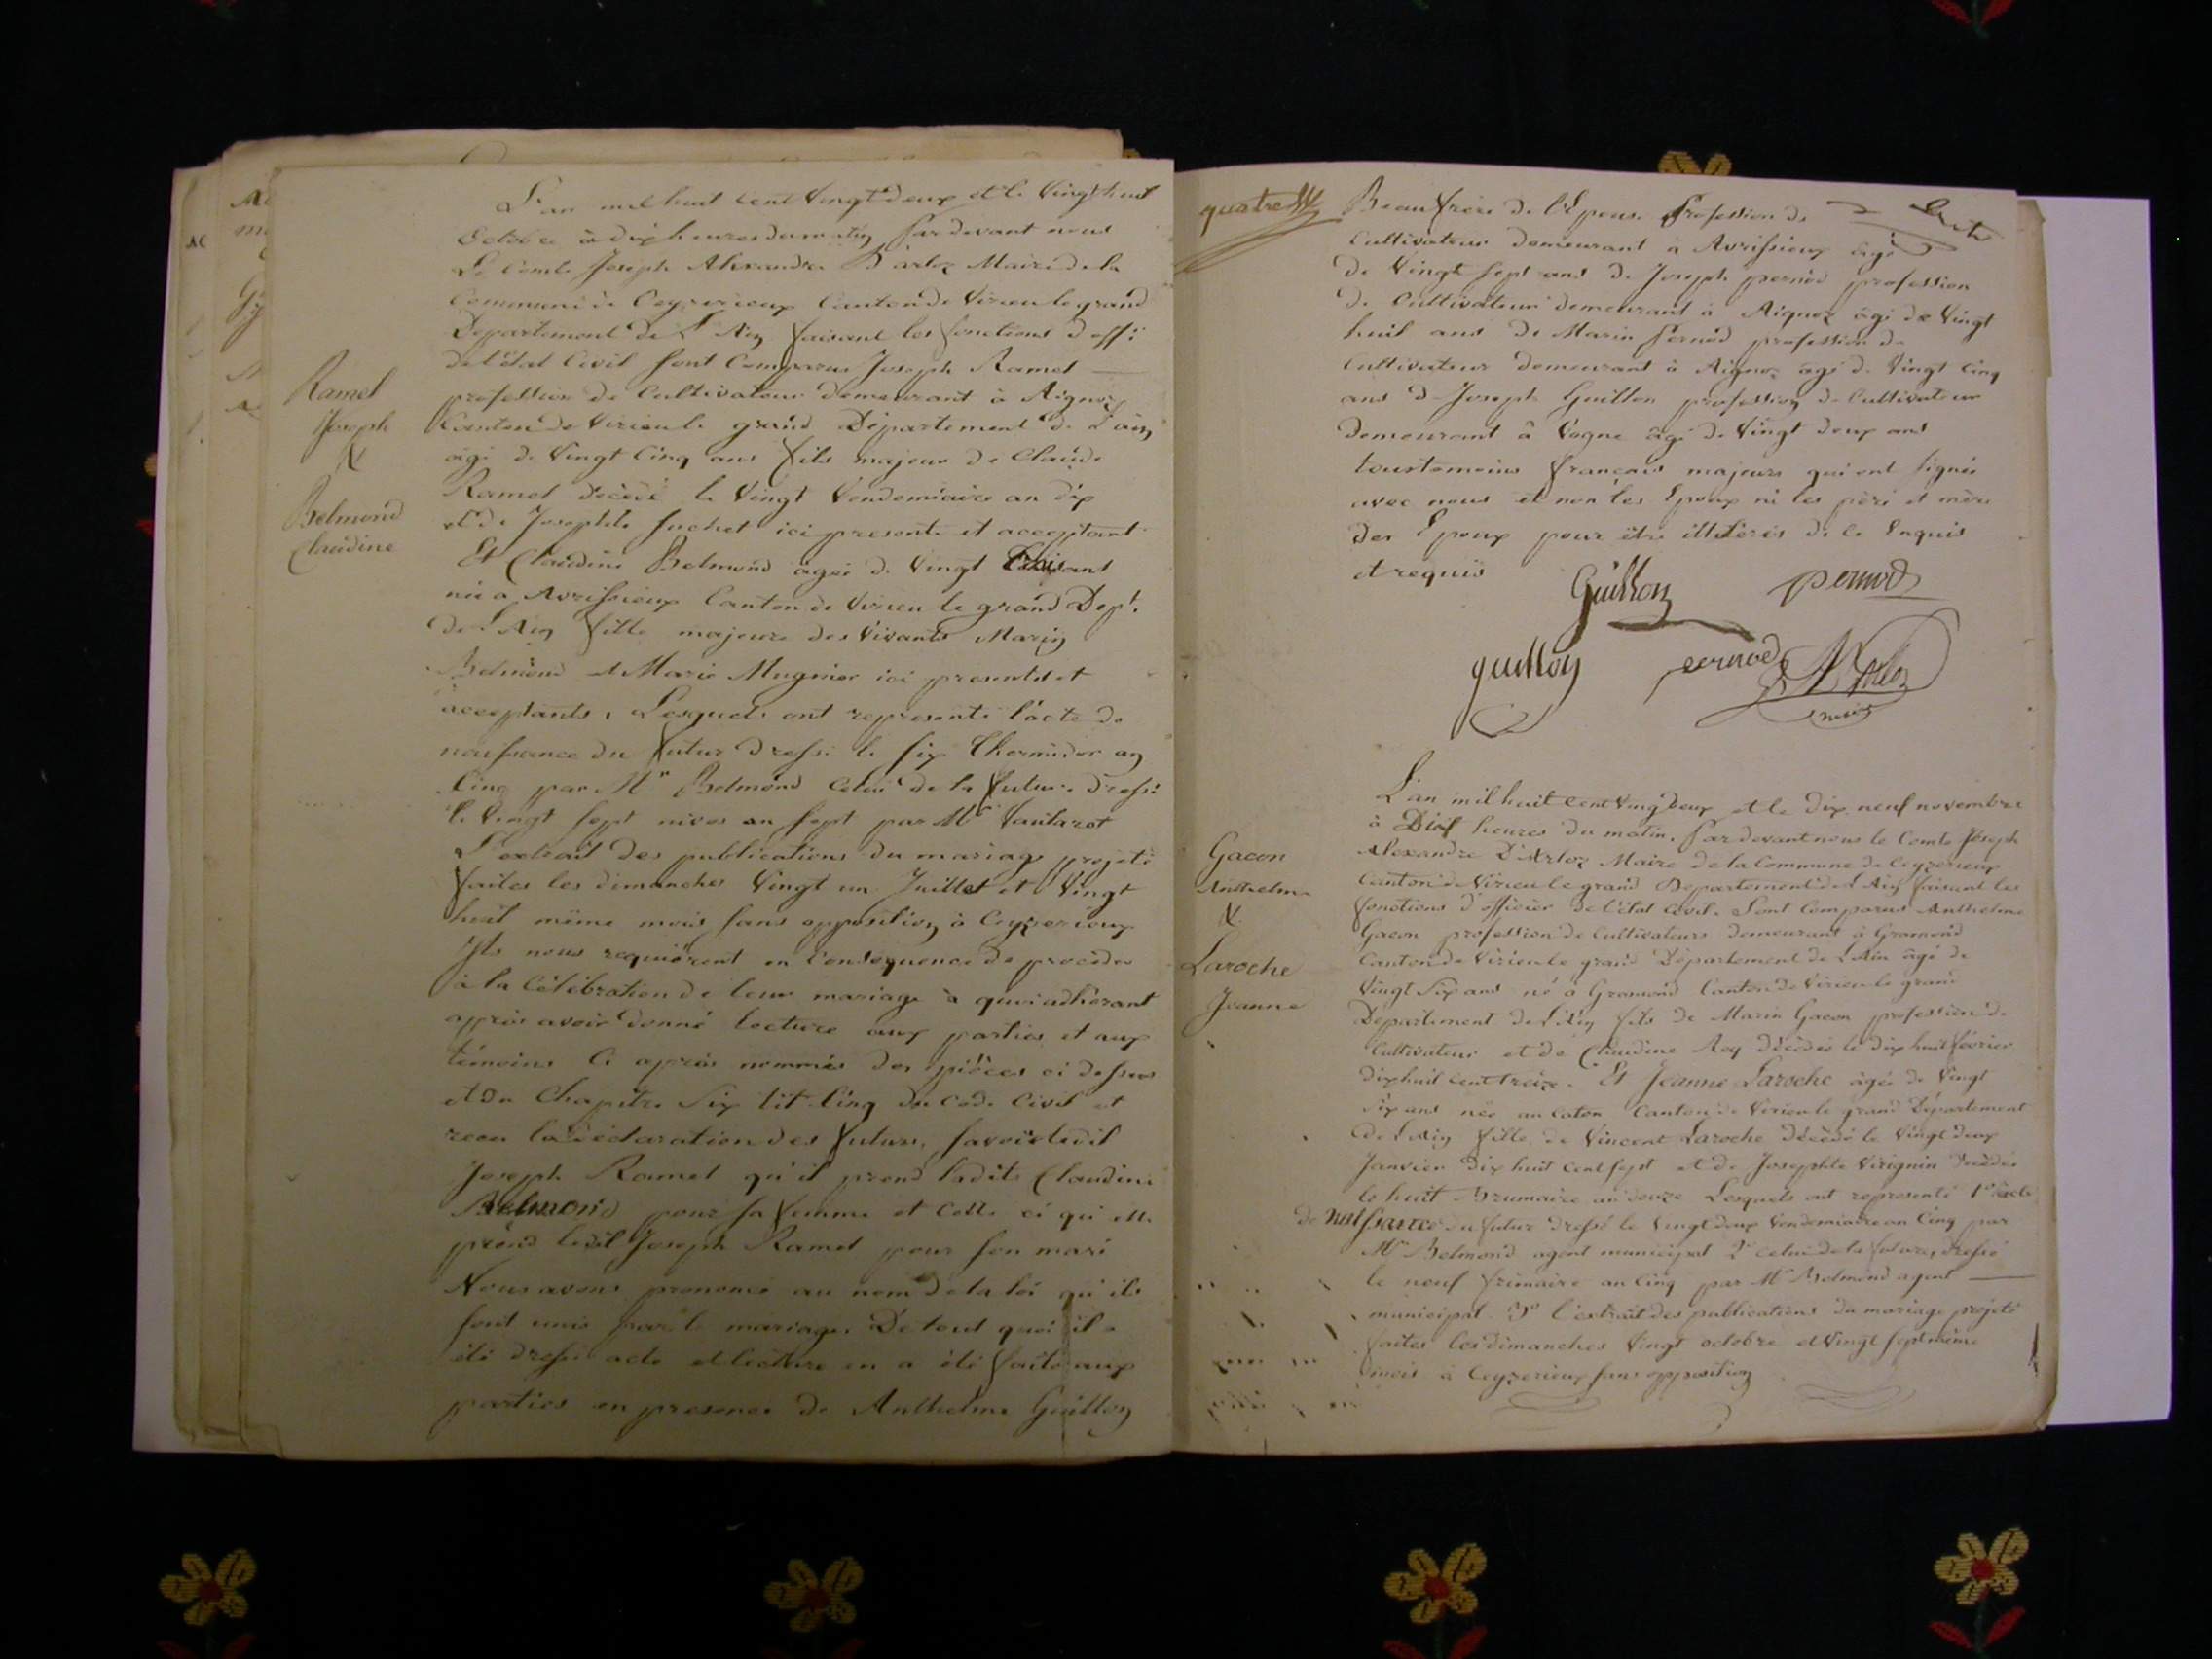 L'an mil huit cent vingt deux et le vingt huit
octobre à dix heures du matin Pardevant nous
Le Comte Joseph Alexandre D'arloz Maire de la
Commune de Ceyzerieux Canton de Virieu le grand
Departement de L'Ain faisant les fonctions d'off:
de l'état Civil sont Comparus Joseph Ramel
profession de Cultivateur demeurant à Aignoz
Canton de Virieu le grand Département de L'ain
âgé de Vingt Cinq ans fils majeur de Claude
Ramel décédé le Vingt Vendemiaire an dix
et de Josephte Suchet ici presente et acceptant
Et Claudine Belmond âgée de Vingt trois ans
née a Avrissieux Canton de Virieu le grand Dept.
de L'Ain fille majeure des vivants Marin
Belmond et Marie Mugnier ici presents et
acceptants, Lesquels ont representé l'acte de
naissance du futur dressé le six thermidor an
Cinq par Mr Belmond Celui de la future dressé
le Vingt sept nivos an sept par Mr
L'extrait des publications du mariage projeté
faites les dimanches Vingt un Juillet et Vingt
huit même mois sans opposition à Ceyzerieux
Ils nous requièrent en Consequence de procéder
à la Célébration de leur mariage à quoi adhérant
après avoir donné lecture aux parties et aux
témoins Ci après nommés des pièces ci dessus
et du Chapitre Six tit. Cinq du Code Civil et
recu la déclaration des futurs, savoir ledit
Joseph Ramel qu'il prend ladite Claudine
Belmond pour sa femme et Celle ci qu'elle
prend ledit Joseph Ramel pour son mari
Nous avons prononcé au nom de la loi qu'ils
sont unis par le mariage. De tout quoi il a
été dressé acte et lecture en a été faite aux
parties en presence de Anthelme Guillon
Ramel
Joseph
&
Belmond
Claudine
quatre
Beaufrère de l'Epouse Profession de
Cultivateur demeurant à Avrissieux âgé
de Vingt sept ans de Joseph pernod profession
de Cultivateur demeurant à Aignoz âgé de Vingt
huit ans de Marin Pernod profession de
Cultivateur demeurant à Aignoz âgé de Vingt Cinq
ans de Joseph Guillon profession de Cultivateur
demeurant à Vogne âgé de Vingt deux ans
tous temoins français majeurs qui ont signés
avec nous et non les Epoux ni les père et mère
des Epoux pour être illitérés de ce Enquis
et requis
Guillon pernod
guillon pernod
L'an mil huit cent vingt deux et le dix neuf novembre
à Dix heures du matin. Pardevant nous le Comte Joseph
Alexandre D'Arloz Maire de la Commune de Ceyzerieux
Canton de Virieu le grand Departement de L'Ain faisant les
fonctions d'officier de l'état Civil. Sont Comparus Anthelme
Gacon profession de Cultivateurs demeurant à Gramond
Canton de Virieu le grand Département de L'Ain âgé de
Vingt Six ans né à Gramond Canton de Virieu le grand
Département de L'Ain fils de Marin Gacon profession de
Cultivateur et de Claudine Rey décédée le dix huit février
dix huit cent treize. Et Jeanne Laroche âgée de Vingt
Six ans née au Caton Canton de Virieu le grand Département
de L'Ain fille de Vincent Laroche décédé le Vingt deux
Janvier dix huit cent sept et de Josephte Virignin décédée
le huit Brumaire an douze Lesquels ont representé 1º l'acte
de naissance du futur dressé le Vingt deux Vendemiaire an Cinq par
Mr Belmond agent municipal 2º celui de la future, dressé
le neuf frimaire an Cinq par Mr Belmond agent
municipal 3º l'extrait des publications du mariage projeté
faites les dimanches Vingt octobre et Vingt sept même
mois à Ceyzerieux sans opposition
Gacon
Anthelme
&
Laroche
Jeanne